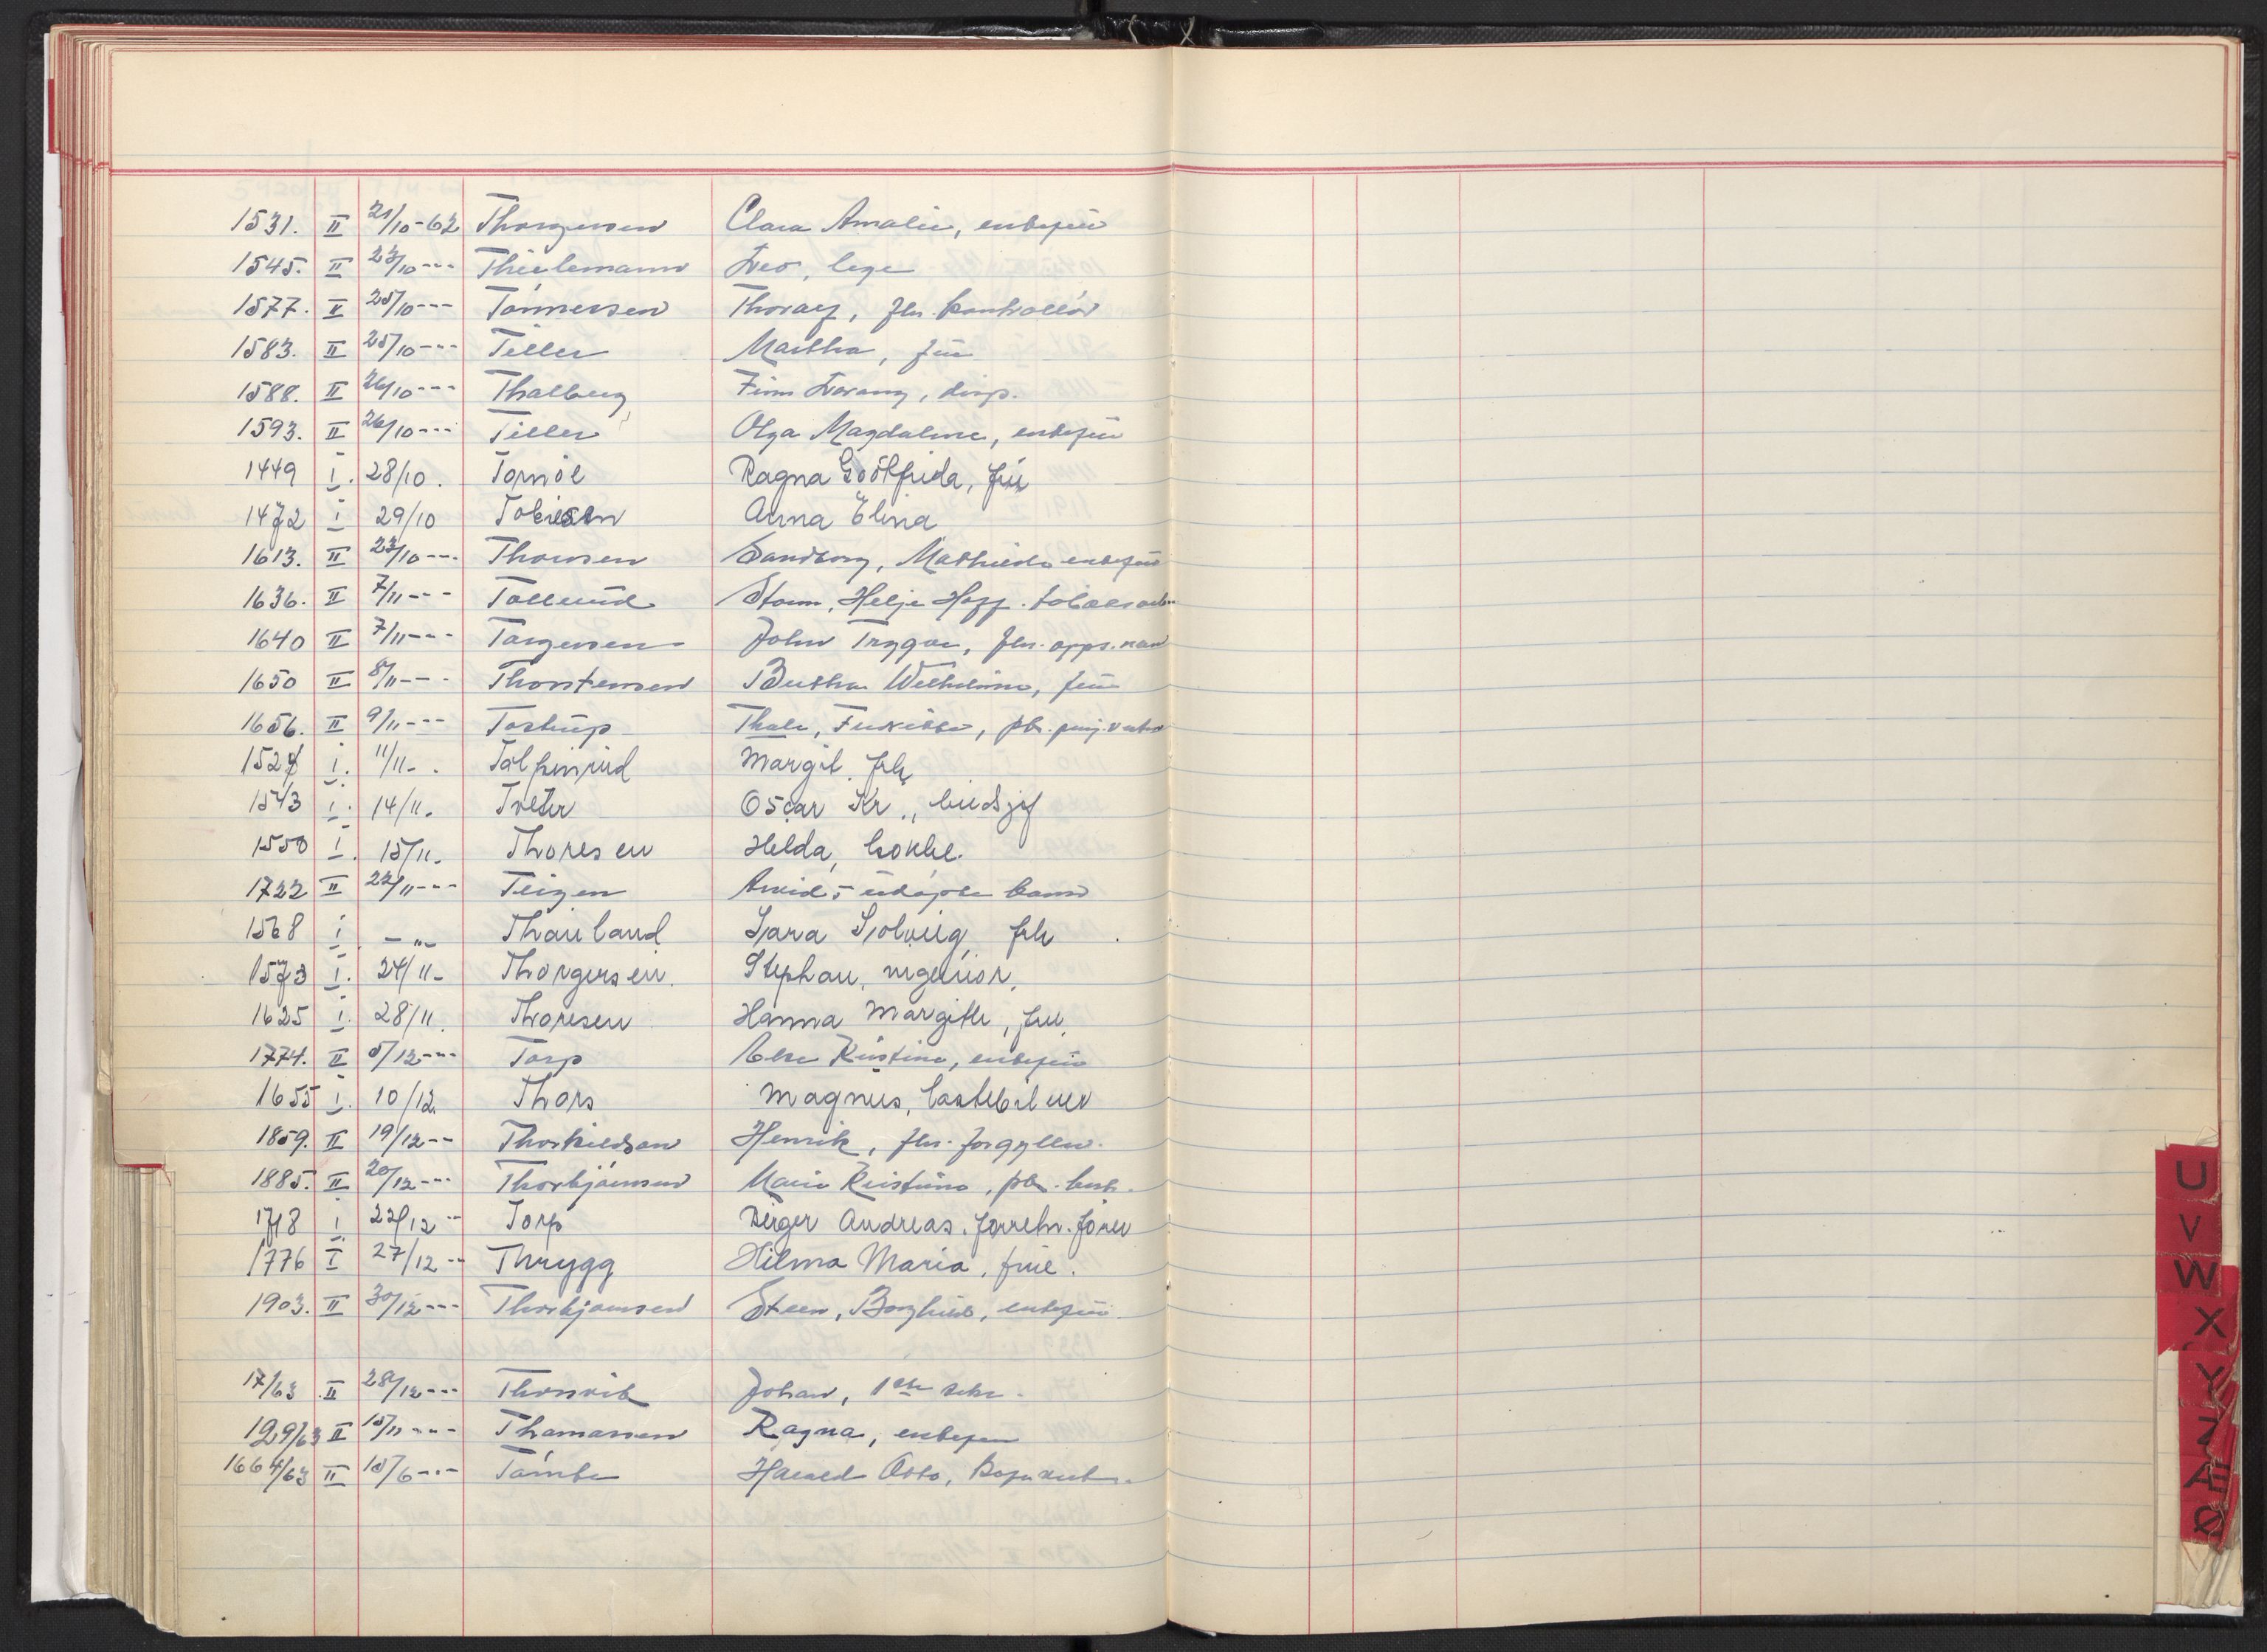 1531. II 21/10-62 Thorgersen Clara Amalie, enkefru
1545. II 23/10 --- Thielemann Leo, lege
1577. II 25/10 --- Tönnersen Thoralf, fhv. kontrollör
1583. II 25/10 --- Tiller Martha, frue
1588. II 26/10 --- Thalberg Finn disp.
1593. II 26/10 --- Tiller Olga Magdalene, enkefru
1449 I. 28/10. Tornöe Ragna Godtfrida, fru
1472 I 29/10 Tobiesen Anna Elina
1613. II 23/10 --- Thomsen Sandborg, Mathilde enkefru
1636. II 7/11 --- Tollerud Storm, Helje Hoff.
1640 II 7/11 --- Torgersen John Trygve, fhv.
1650 II 8/11 --- Thorstensen Berthe Wilhelmine, frue
1656. II 9/11 --- Tostrup Thale,
1527 I. 11/11-. Margit frk
1543 I. 14/11. Tveter Oscar Kr.,
1550 I. 15/11. Thoresen Helda,
1722 II 22/11 --- Teigen Arvid,
1568 I - " - Thauland Sara Solveig frk
1573 I. 24/11- Thorgersen. Stephan, ingeniör.
1625 I. 28/11. Thoresen Hanna Margithe, fru.
1774. II 5/12 --- Torp Kristine, enkefru
1655 I. 10/12. Thors Magnus, lastebileier
1859. II 19/12 -- Thorkildsen Henrik, fhv. forgyller.
1885. II 20/12 --- Thorbjörnsen Marie Kristine, best.
1718 I 22/12 -- Torp Birger Andreas. forretn. förer
1776 I 27/12 -- Thrygg Hilma Maria, frue.
1903. II 30/12 --- Thorbjörnsen Steen, Borghild, enkefru.
17/63 II 28/12 --- Thorsvik Johan, sekr.
129/63 II 15/11 --- Thomassen Ragna, enkefru
1664/63 II 15/6 --- Tömte Harald Otto,
U
V
W
X
Y
Z
Æ
Ø